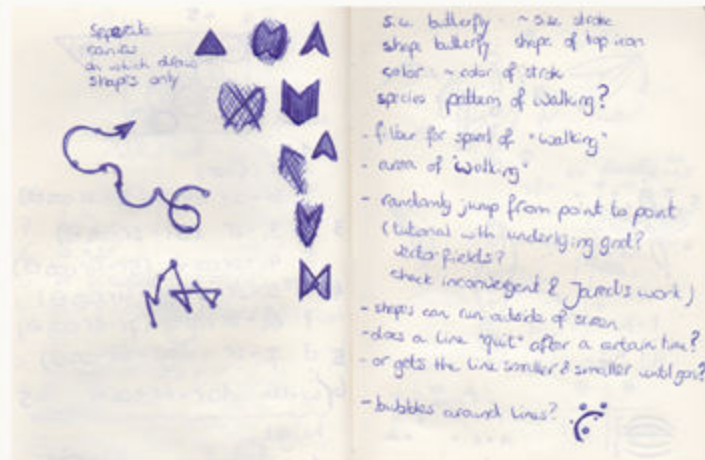 Seperate
canvas
on which draw
shapes only
size butterfly ~ size stroke
shape butterfly shape of top icon
color ~ color of stroke
species pattern of walking?
- filter for speed of "walking"
- area of "walking"
- randomly jump from point to point
(tutorial with underlying grid?
vector fields?
check inconvergent & Jared's work)
- shapes can run outside of screen
- does a line "quit" after a certain time?
- or gets the line smaller & smaller until gone?
- bubbles around lines?